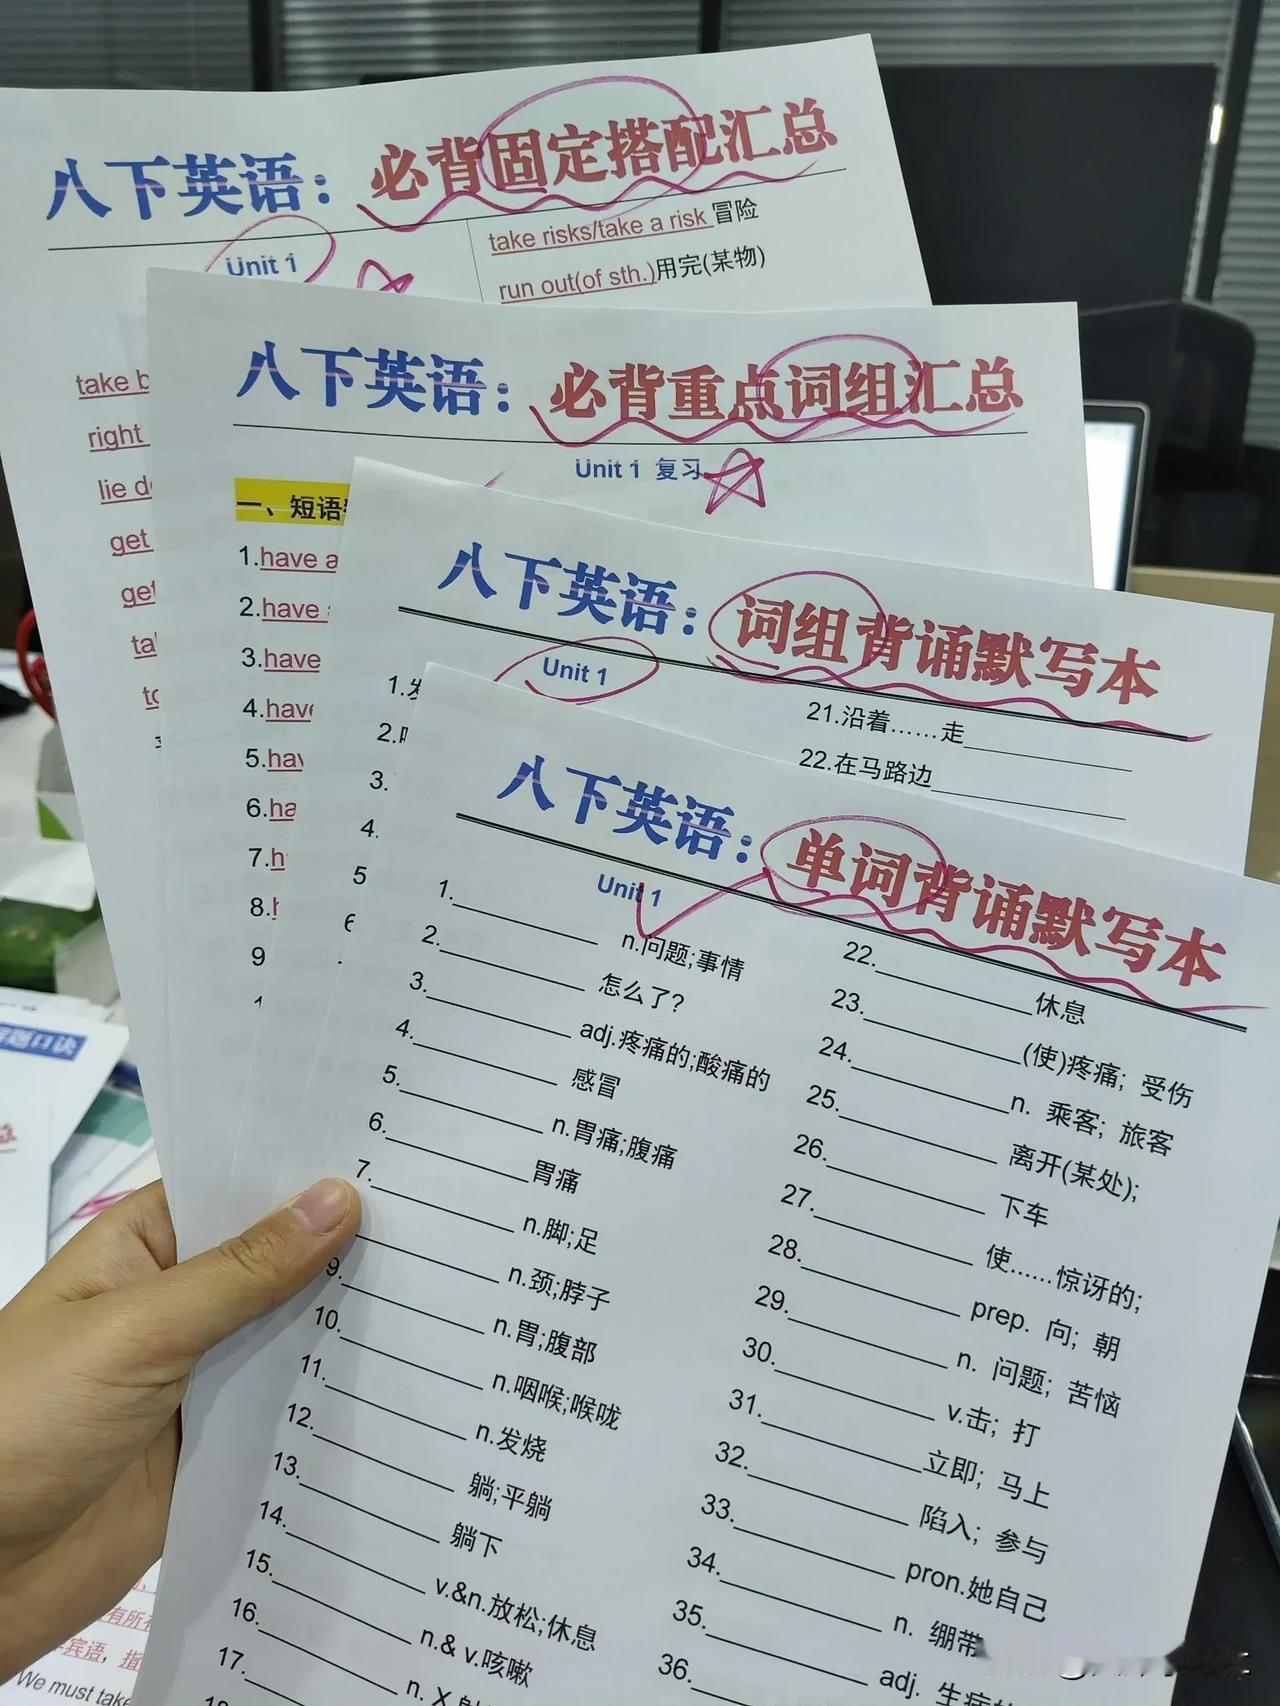 八下英语：必背固定搭配汇总
Unit 1
take risks/take a risk 冒险
run out(of sth.)用完(某物)
take b
right
lie d
get
get
ta
八下英语：必背重点词组汇总
Unit 1 复习
一、短语
1.have a
2.have
3.have
4.hav
5.ha
6.ha
7.h
8.h
9
八下英语：词组背诵默写本
Unit 1
1.发
2.
3.
4.
5
6
21.沿着……走
22.在马路边
八下英语：单词背诵默写本
Unit 1
1. n.问题;事情
2. 怎么了?
3. adj.疼痛的;酸痛的
4. 感冒
5. n.胃痛;腹痛
6. 胃痛
7. n.脚;足
n.颈;脖子
9. n.胃;腹部
10. n.咽喉;喉咙
11. n.发烧
12. 躺;平躺
13. 躺下
14. v.&n.放松;休息
15. n.& v.咳嗽
16. n. X
17.
22. 休息
23. (使)疼痛；受伤
24. n. 乘客；旅客
25. 离开(某处);
26. 下车
27. 使……惊讶的;
28. prep. 向；朝
29. n. 问题；苦恼
30. v.击；打
31. 立即；马上
32. 陷入；参与
33. pron.她自己
34. n. 绷带
35. adj. 生病的
36.
题口诀
有所
宾语，指
We must take